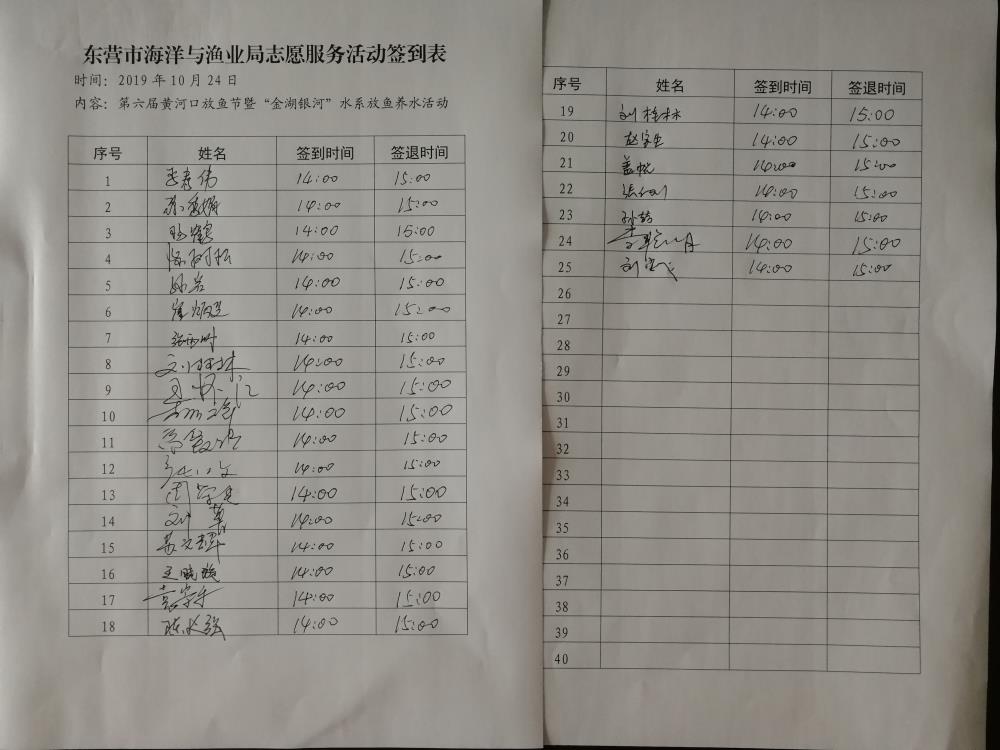 东营市海洋与渔业局志愿服务活动签到表
时间：2019年10月24日
内容：第六届黄河口放鱼节暨“金湖银河”水系放鱼养水活动
序号 姓名 签到时间 签退时间
1 李寿伟 14:00 15:00
2 14:00 15:00
3 14:00 15:00
4 14:00 15:00
5 孙岩 14:00 15:00
6 14:00 15:00
7 14:00 15:00
8 14:00 15:00
9 14:00 15:00
10 14:00 15:00
11 14:00 15:00
12 14:00 15:00
13 周学建 14:00 15:00
14 14:00 15:00
15 14:00 15:00
16 王晓璇 14:00 15:00
17 14:00 15:00
18 14:00 15:00
序号 姓名 签到时间 签退时间
19 刘桂林 14:00 15:00
20 14:00 15:00
21 14:00 15:00
22 14:00 15:00
23 14:00 15:00
24 14:00 15:00
25 14:00 15:00
26
27
28
29
30
31
32
33
34
35
36
37
38
39
40